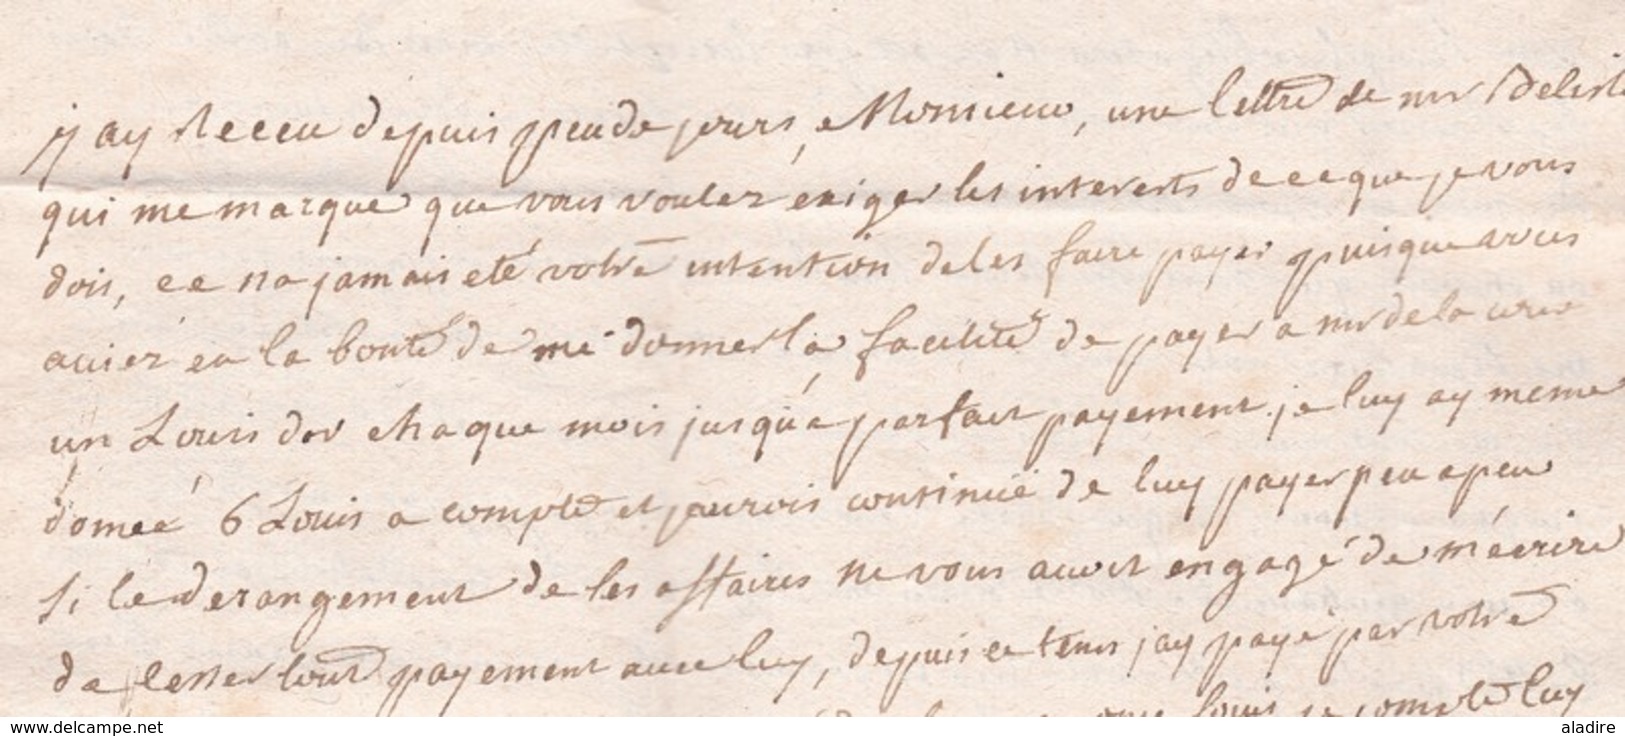 j'ay Receu depuis peu de jours, Monsieur, une lettre de mr Delisle
qui me marque que vous voulez exiger les interests de ce que je vous
dois, ce na jamais eté votre intention de les faire payer puisque avies
aviez eu la bonté de me donner la facilité de payer a mr de la
un Louis dor chaque mois jusqu'a parfait payement. je luy ay meme
donné 6 Louis a compte et jaurois continué de luy payer peu a peu
si le derangement de ses affaires ne vous avoit engagé de m'écrire
de cesser tout payement avec luy, depuis ce tems j'ay payé par votre
Louis je compte luy
www.delcampe.net
aladire